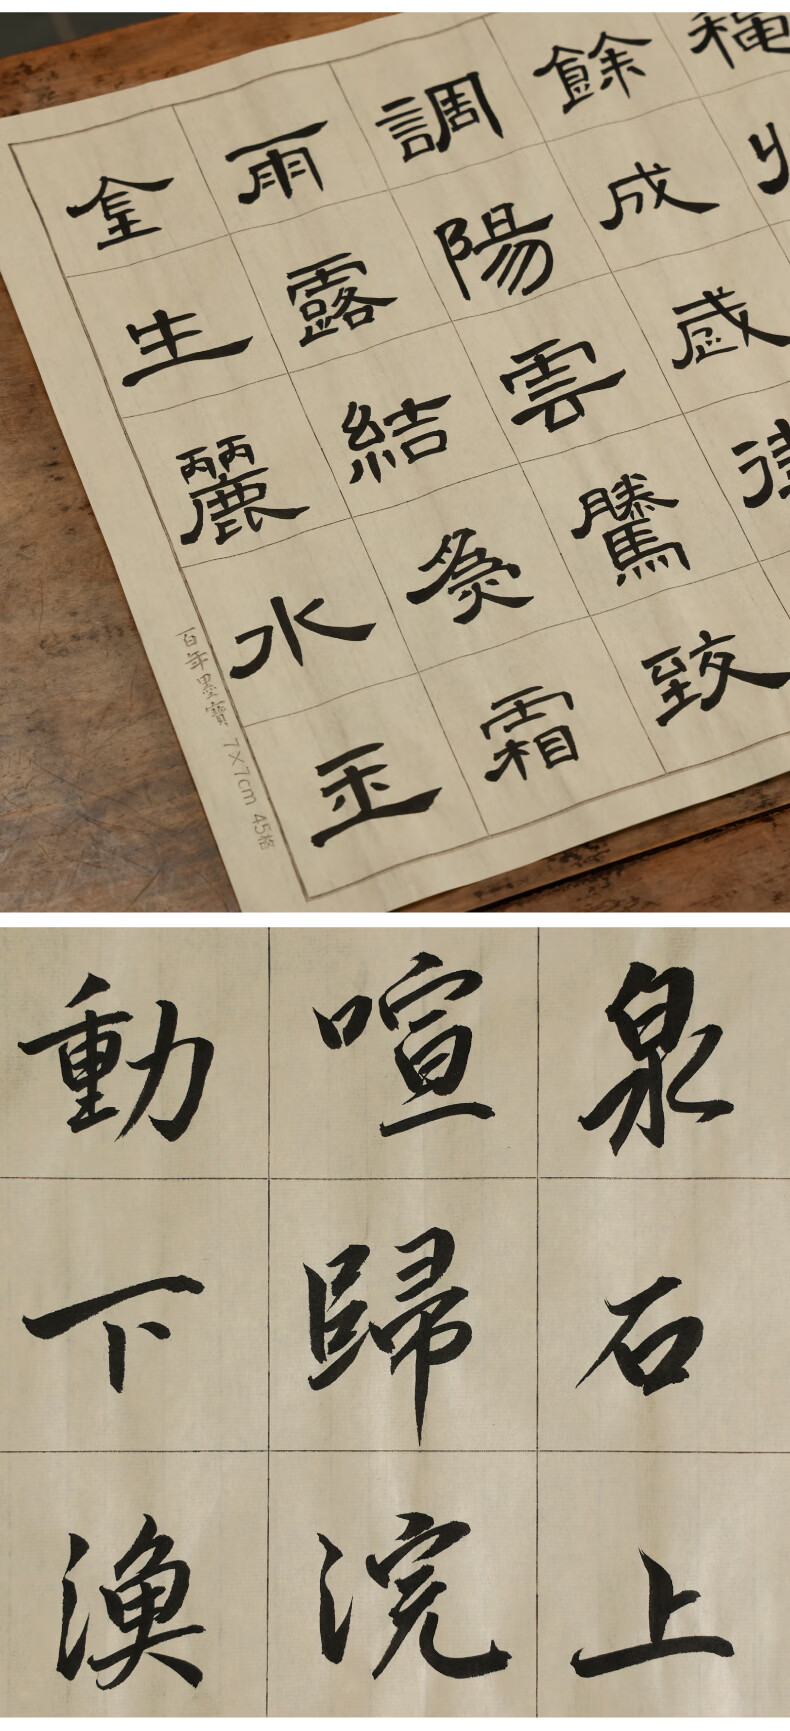 餘成歲
調陽雲騰致
雨露結爲霜
金生麗水玉
百年墨寶 7×7cm 45格
泉石上
喧歸浣
動下漁